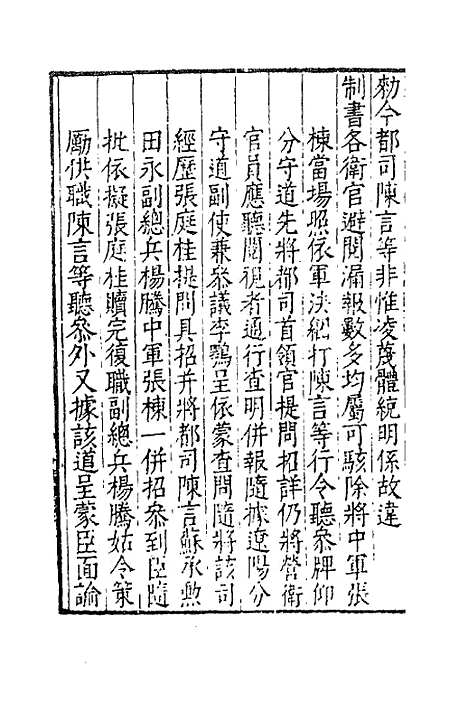 勑今都司陳言等非惟凌蔑體統明係故違
制書各衛官避閱漏報數多均屬可駭除將中軍張
棟當場照依軍決綑打陳言等行令聽參牌仰
分守道先將都司首領官提問招詳仍將營衛
官員應聽閱視者通行查明併報隨據遼陽分
守道副使兼參議李鶚呈依蒙查問隨將該司
經歷張庭桂提問具招并將都司陳言蘇承勲
田永副總兵楊騰中軍張棟一併招參到臣隨
批依擬張庭桂贖完復職副總兵楊騰姑令策
勵供職陳言等聽參外又據該道呈蒙臣面諭